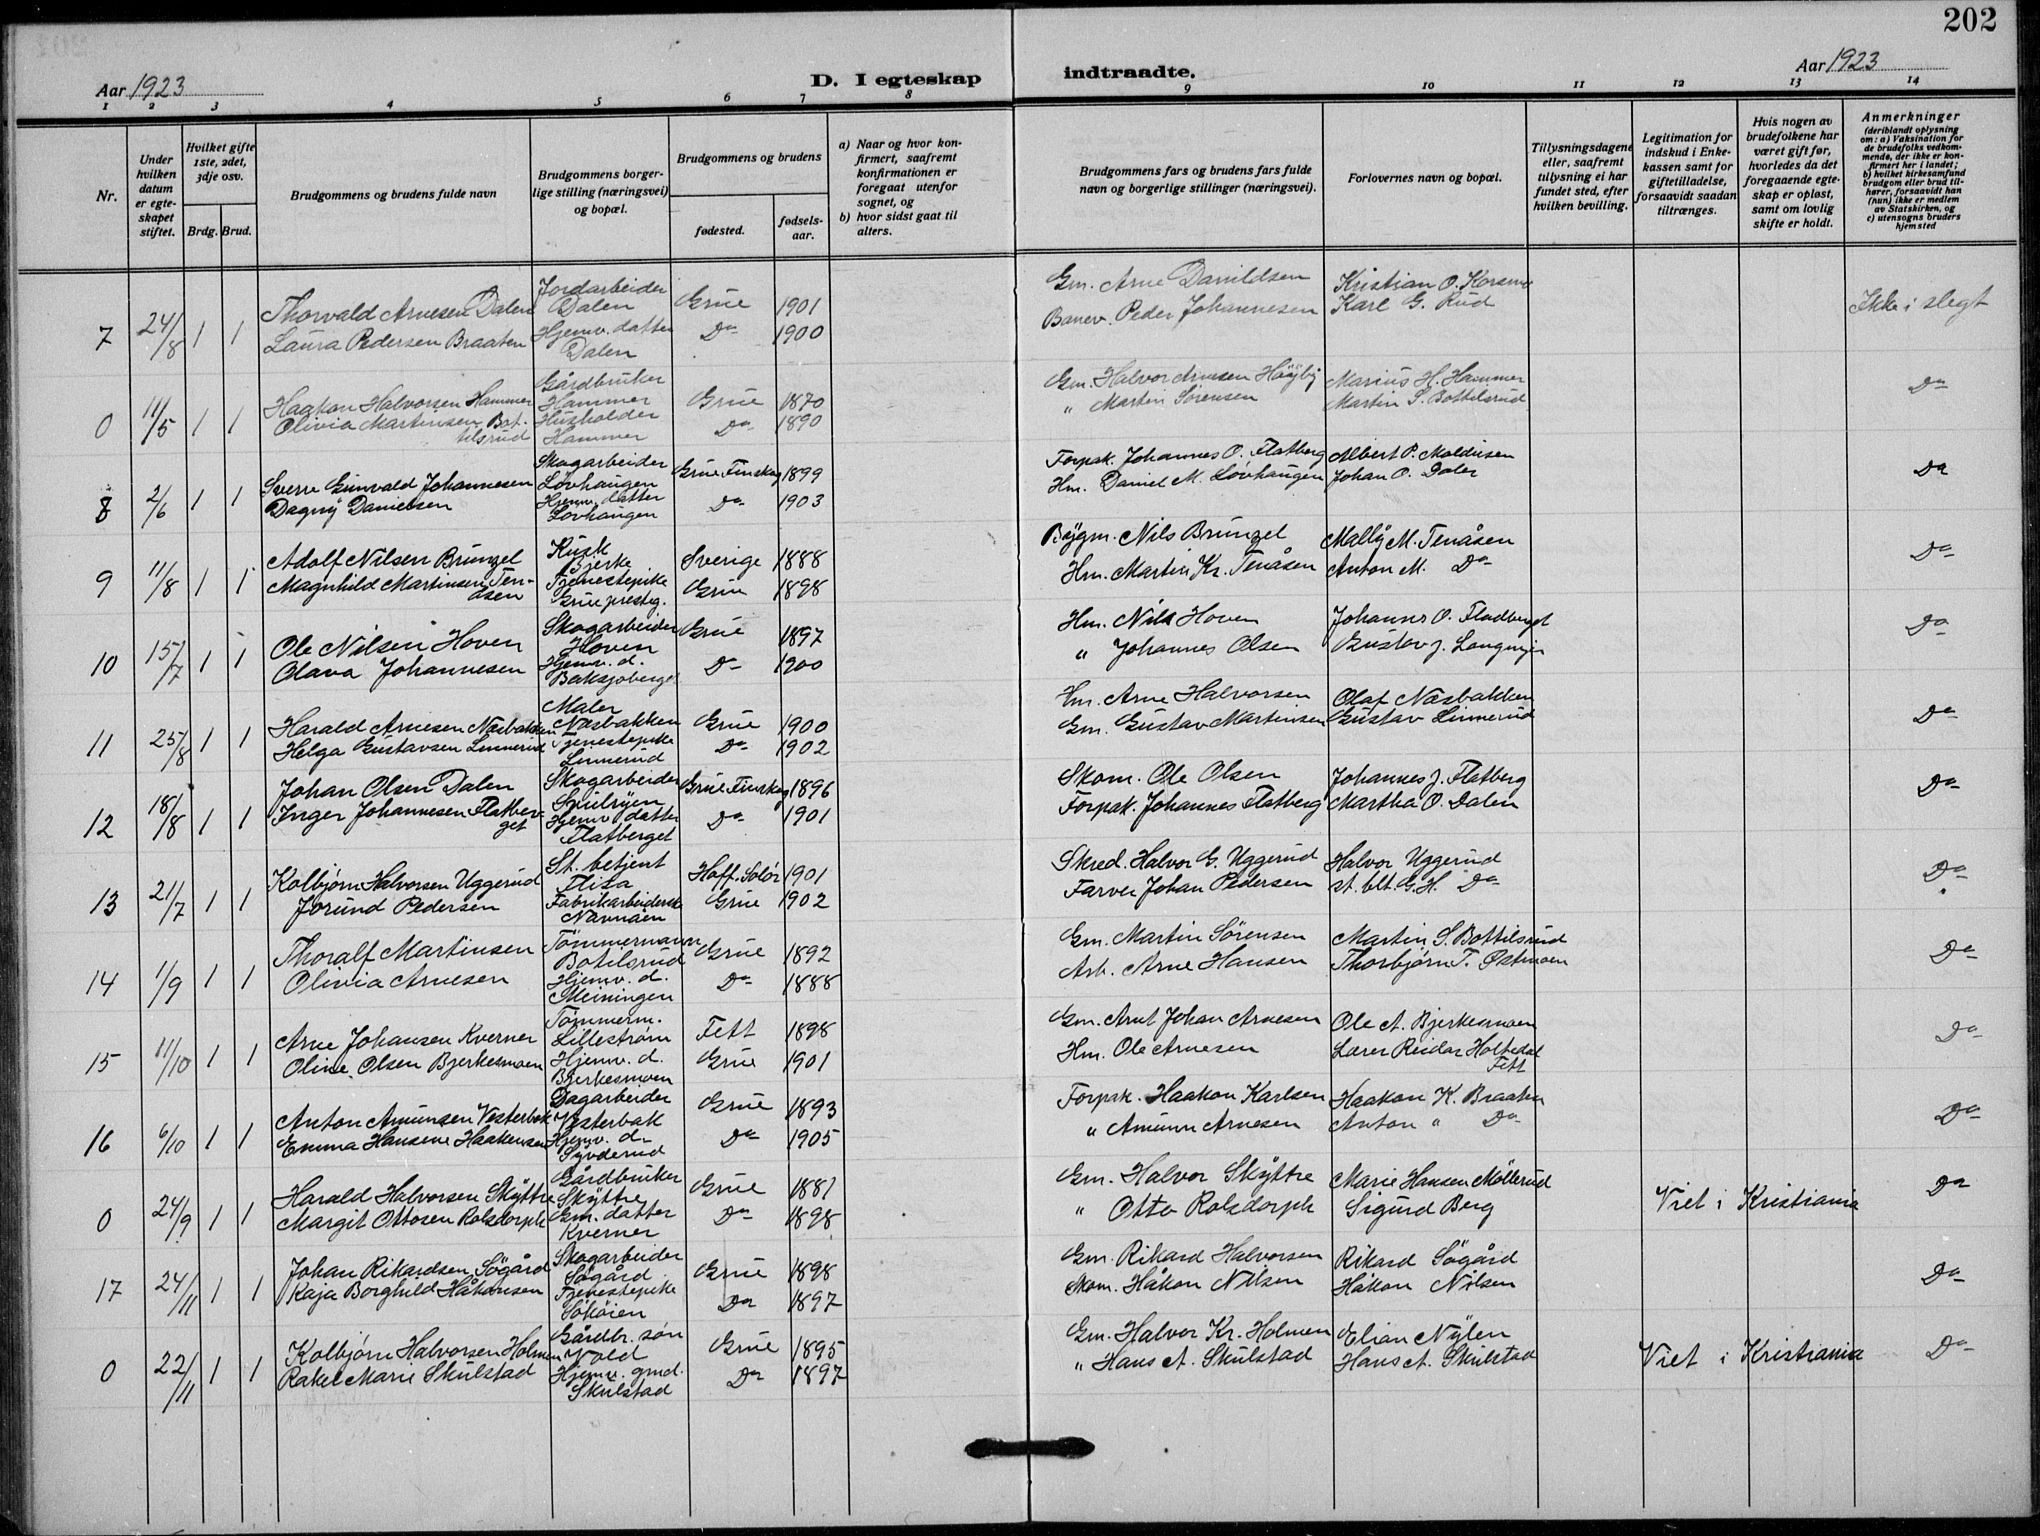 202
Aar 1923
D. I egteskap
indtraadte.
Aar 1923
1 2 3 4 5 6 7 8 9 10 11 12 13 14
Nr.
Under hvilken datum er egteskapet stiftet.
Hvilket gifte 1ste, 2det, 3dje osv.
Brdg. Brud.
Brudgommens og brudens fulde navn
Brudgommens borgerlige stilling (næringsvei) og bopæl.
Brudgommens og brudens
fødested.
fødselsaar.
a) Naar og hvor konfirmert, saafremt konfirmationen er foregaat utenfor sognet, og
b) hvor sidst gaat til alters.
Brudgommens fars og brudens fars fulde navn og borgerlige stillinger (næringsvei).
Forlovernes navn og bopæl.
Tillysningsdagene eller, saafremt tillysning ei har fundet sted, efter hvilken bevilling.
Legitimation for indskud i Enkekassen samt for giftetilladelse, forsaavidt saadan tiltrænges.
Hvis nogen av brudefolkene har været gift før, hvorledes da det foregaaende egteskap er opløst, samt om lovlig skifte er holdt.
Anmerkninger
(deriblandt oplysning om: a) Vaksination for de brudefolks vedkommende, der ikke er konfirmert her i landet; b) hvilket kirkesamfund brudgom eller brud tilhører, forsaavidt han (hun) ikke er medlem av Statskirken, og c) utensogns bruders hjemsted
7 24/8 1 1 Thorvald Arnesen Dalen Jordarbeider Dalen Grue 1901 Gm. Arne Danildsen Kristian O. Korsmo Ikke i slegt
Laura Pedersen Braaten Hjemv. datter Dalen Do 1900 Banev. Peder Johannesen Karl G. Rud
0 11/5 1 1 Haakon Halvorsen Hammer Gårdbruker Hammer Grue 1870 Gm. Halvor Arnesen Høiby Marius H. Hammer Do
Olivia Martinsen Bottilsrud Husholder Hammer Do 1890 " Martin Sørensen Martin S. Bottilsrud
8 2/6 1 1 Sverre Gunvald Johannesen Skogarbeider Løvhaugen Grue Finskog 1899 Forpak. Johannes O. Flatberg Albert P. Do
Dagny Danielsen Hjemv. datter Løvhaugen Do 1903 Hm. Daniel M. Løvhaugen Johan O. Dalen
9 11/8 1 1 Adolf Nilsen Brunzel Kusk Bjerke Sverige 1888 Bygm. Nils Brunzel Mally M. Tenåsen Do
Magnhild Martinsen Tenåsen Tjenestepike Grue prestg. Grue 1898 Hm. Martin Kr. Tenåsen Anton M. Do
10 15/7 1 1 Ole Nilsen Hoven Skogarbeider Hoven Grue 1897 Hm. Nils Hoven Johannes O. Fladberget Do
Olava Johannesen Hjemv. d. Baksjøberget Do 1900 " Johannes Olsen Gustav J.
11 25/8 1 1 Harald Arnesen Næsbakken Maler Næsbakken Grue 1900 Hm. Arne Halvorsen Olaf Næsbakken Do
Helga Gustavsen Linnerud Tjenestepike Linnerud Do 1902 Gm. Gustav Martinsen Gustav Linnerud
12 18/8 1 1 Johan Olsen Dalen Skogarbeider Grue Finskog 1896 Skom. Ole Olsen Johannes J. Flatberg Do
Inger Johannesen Flatberget Hjemv. datter Flatberget Do 1901 Forpak. Johannes Flatberg Martha O. Dalen
13 21/7 1 1 Kolbjørn Halvorsen Uggerud St. betjent Flisa Hoff. Solør 1901 Skred. Halvor G. Uggerud Halvor Uggerud Do
Jorund Pedersen Fabrikarbeiderske Navnåen Grue 1902 Farver Johan Pedersen st. btt. G. H. Do
14 1/9 1 1 Thoralf Martinsen Tømmermann Botilsrud Grue 1892 Gm. Martin Sørensen Martin S. Bottilsrud Do
Olivia Arnesen Hjemv. d. Meiningen Do 1888 Arb. Arne Hansen Thorbjørn T.
15 11/10 1 1 Arne Johansen Kverner Tømmerm. Lillestrøm Fett 1898 Gm. Arnt Johan Arnesen Ole A. Bjerkesmoen Do
Oline Olsen Bjerkesmoen Hjemv. d. Bjerkesmoen Grue 1901 Hm. Ole Arnesen Lærer Reidar Holtedal Fett
16 6/10 1 1 Anton Amunsen Vesterbak Dagarbeider Vesterbak Grue 1893 Forpak. Haakon Karlsen Haakon K. Braaten Do
Emma Hansine Haakensen Hjemv. d. Do 1905 " Amunn Arnesen Anton " Do
0 24/9 1 1 Harald Halvorsen Skyttre Gårdbruker Skyttre Grue 1881 Gm. Halvor Skyttre Marie Hansen Möllerud Viet i Kristiania Do
Margit Ottosen Rolsdorph Gm. datter Kverner Do 1898 " Otto Rolsdorph Sigurd Berg
17 24/11 1 1 Johan Rikardsen Søgård Skogarbeider Søgård Grue 1898 Gm. Rikard Halvorsen Rikard Søgård Do
Kaja Borghild Håkonsen Tjenestepike Do 1897 Skom. Håkon Nilsen Håkon Nilsen
0 22/11 1 1 Kolbjørn Halvorsen Holmen Gårdbr. søn Vold Grue 1895 Gm. Halvor Kr. Holmen Elian Nylen Viet i Kristiania Do
Rakel Marie Skulstad Hjemv. gmd. Skulstad Do 1897 " Hans A. Skulstad Hans A. Skulstad